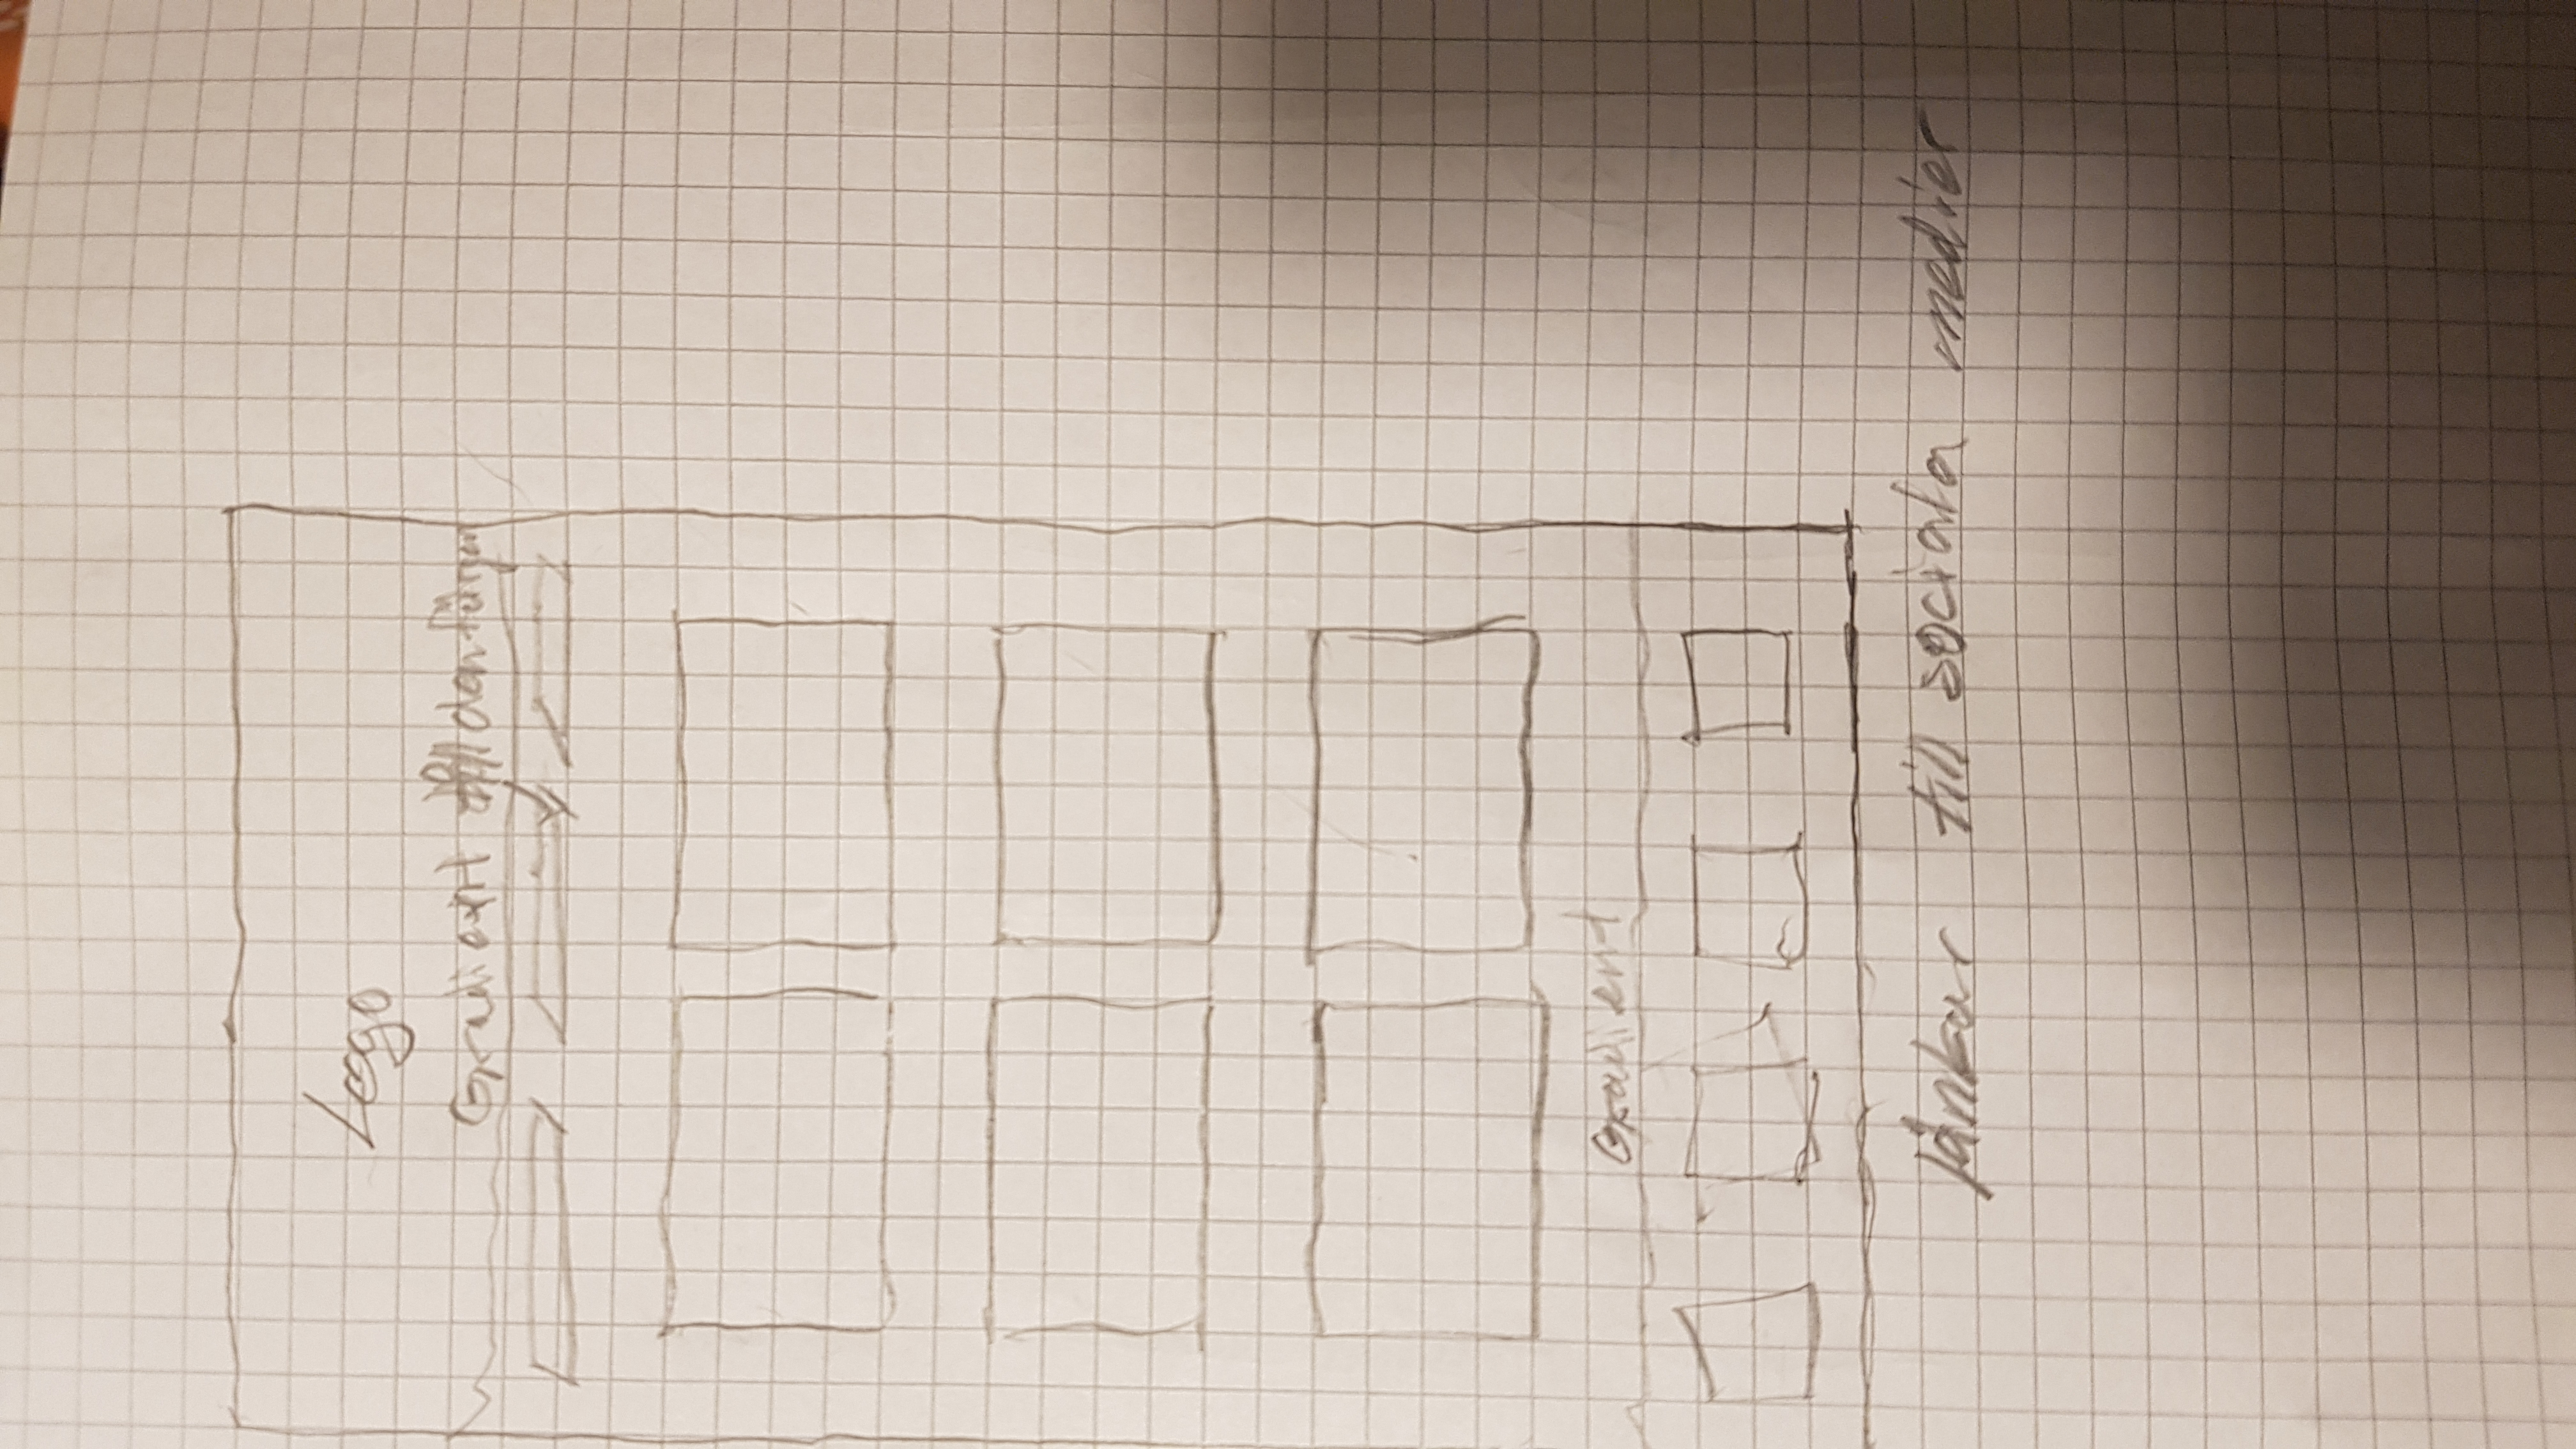 Logo
Gradient till den färgen
Gradient
länkar till sociala medier